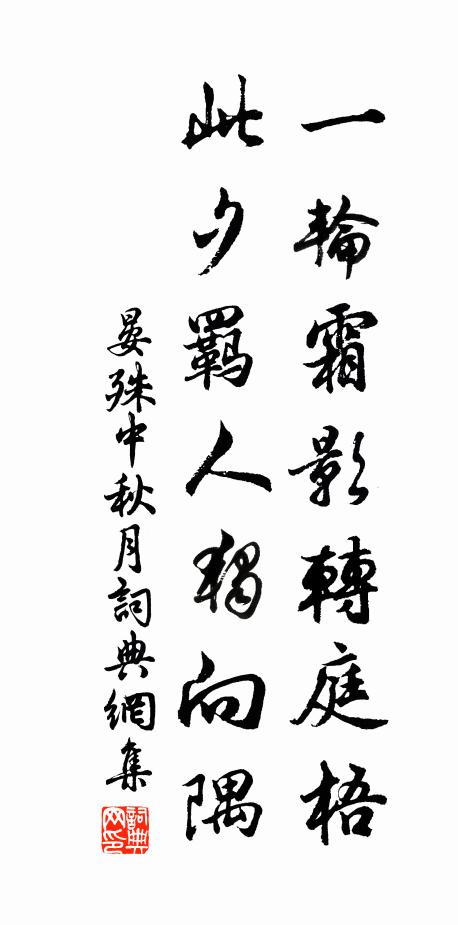 一輪霜影轉庭梧
此夕羈人獨向隅
晏殊中秋月詞典網集
詞典网印